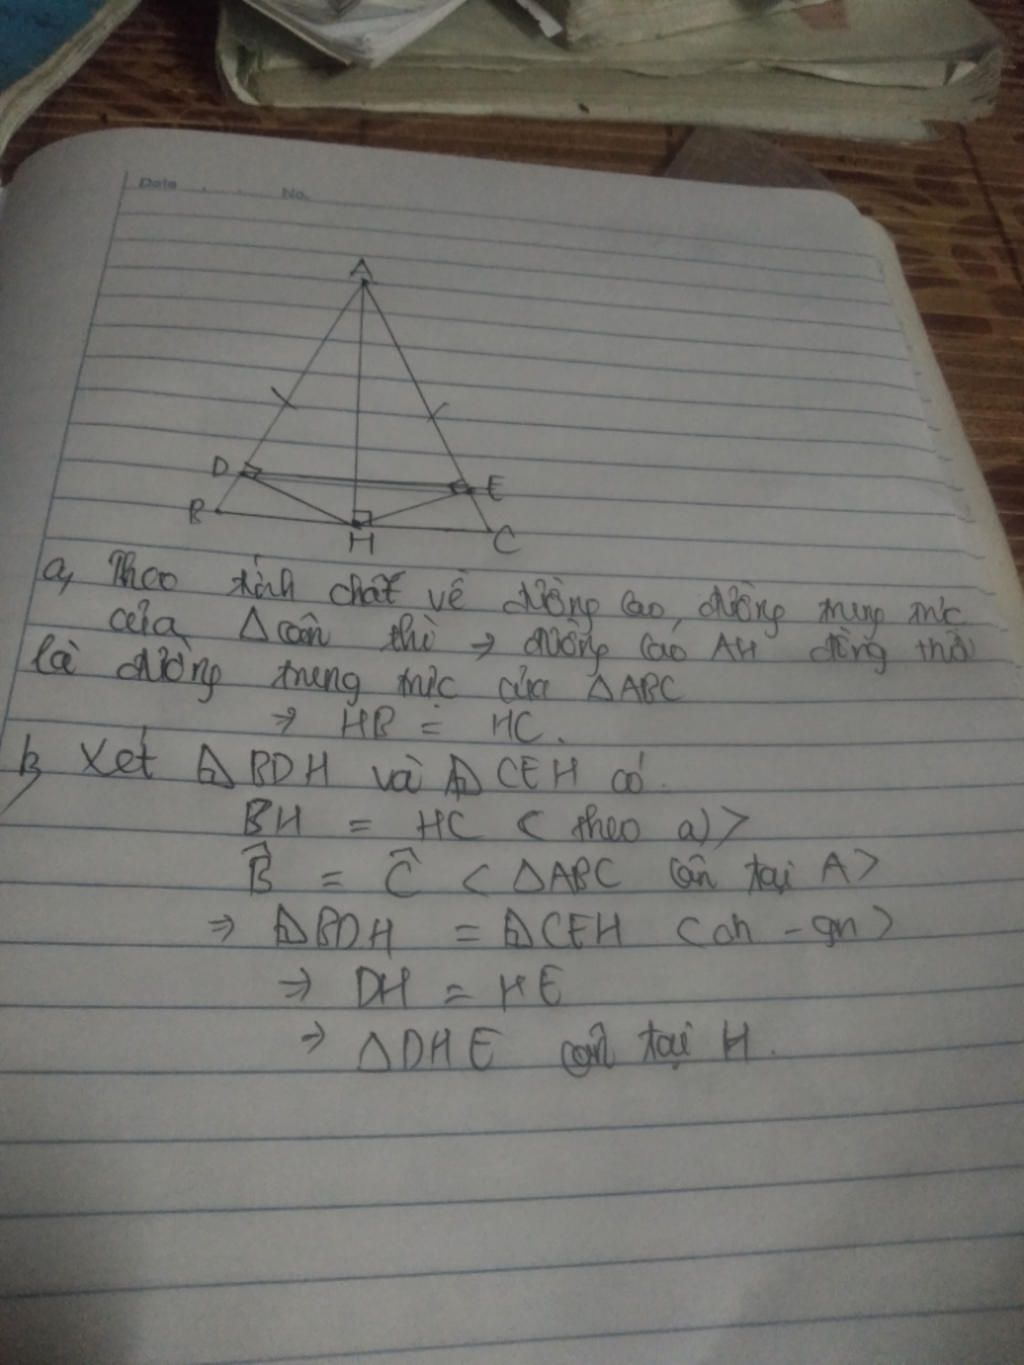 Date No.
A
D
E
B
H
C
a, Theo tính chất về đường cao, đường trung trực
của Δ cân thì ⇒ đường cao AH đồng thời
là đường trung trực của ΔABC
⇒ HB = HC.
b, Xét ΔBDH và ΔCEH có
BH = HC < theo a) >
B̂ = Ĉ < ΔABC cân tại A >
⇒ ΔBDH = ΔCEH (ch - gn)
⇒ DH = HE
⇒ ΔDHE cân tại H.